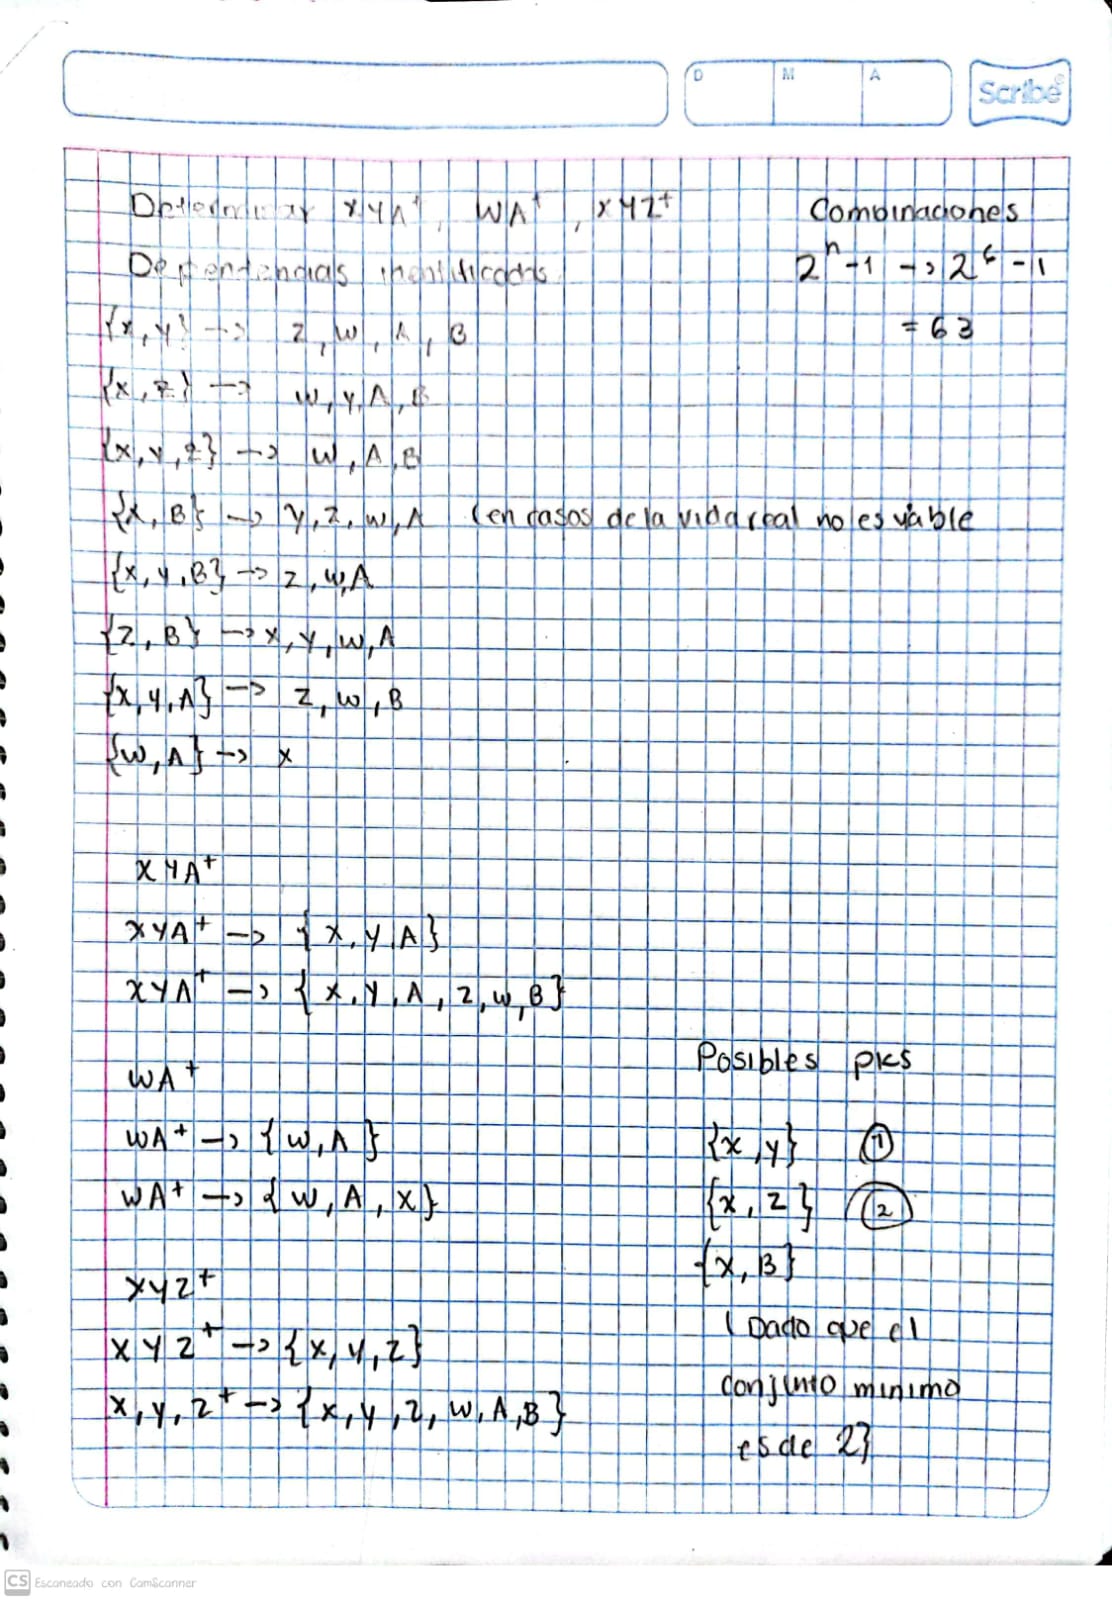 D M A
Scribe
Determinar XYA⁺, WA⁺, XYZ⁺
Dependencias identificadas
{x,y} -> z, w, A, B
{x,z} -> w, y, A, B
{x,y,z} -> w, A, B
{x,B} -> y, z, w, A (en casos de la vida real no es viable
{x,y,B} -> z, w, A
{z,B} -> x, y, w, A
{x,y,A} -> z, w, B
{w,A} -> x
Combinaciones
2ⁿ-1 -> 2⁶-1
= 63
XYA⁺
XYA⁺ -> {x,y,A}
XYA⁺ -> {x,y,A,z,w,B}
WA⁺
WA⁺ -> {w,A}
WA⁺ -> {w,A,x}
XYZ⁺
XYZ⁺ -> {x,y,z}
x,y,z⁺ -> {x,y,z,w,A,B}
Posibles pks
{x,y} ①
{x,z} ②
{x,B}
(Dado que el
conjunto minimo
es de 2}
CS Escaneado con CamScanner